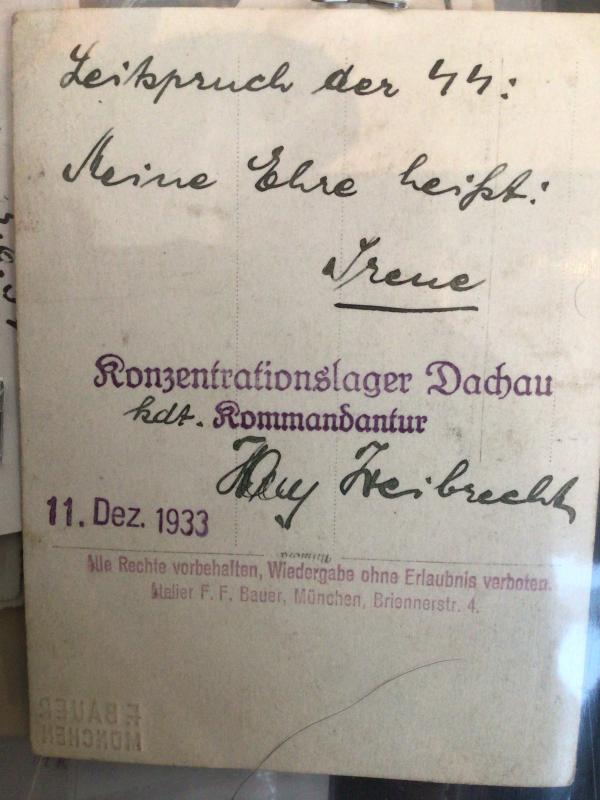 Leitspruch der SS:
Meine Ehre heißt:
Treue
Konzentrationslager Dachau
kdt. Kommandantur
11. Dez. 1933
Alle Rechte vorbehalten, Wiedergabe ohne Erlaubnis verboten.
Atelier F. F. Bauer, München, Briennerstr. 4.
F. BAUER
MÜNCHEN